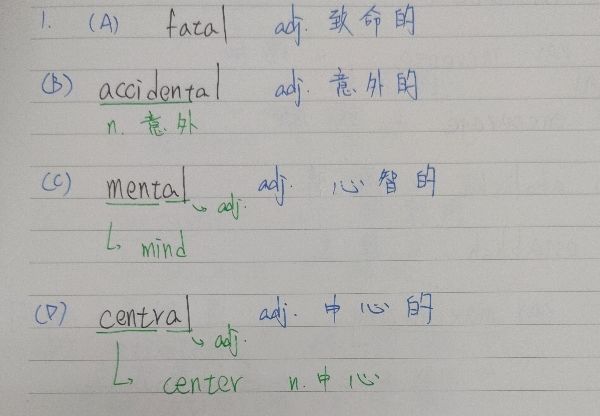 1. (A) fatal adj. 致命的
(B) accidental adj. 意外的
n. 意外
(C) mental adj. 心智的
adj.
mind
(D) central adj. 中心的
adj.
center n. 中心